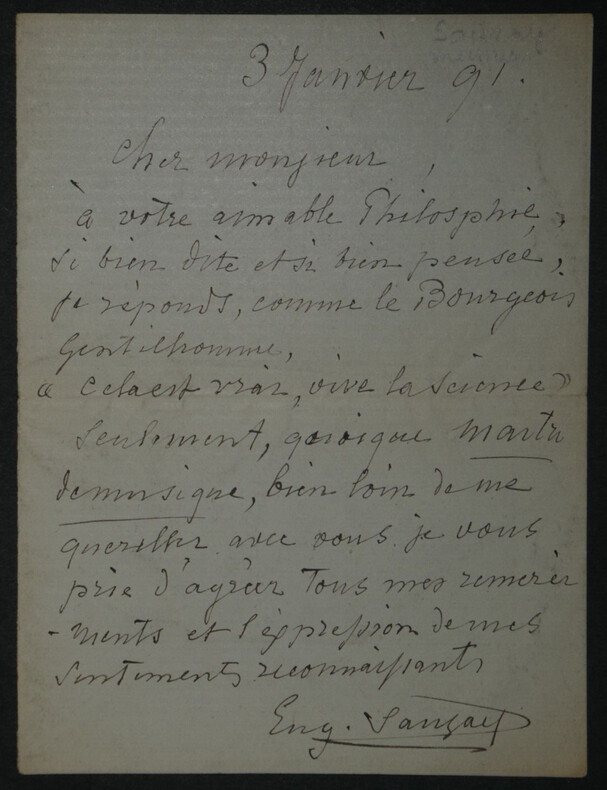 3 Janvier 91.
Cher monsieur,
à votre aimable Philosphie,
si bien dite et si bien pensée,
je réponds, comme le Bourgeois
Gentilhomme,
« cela est vrai, vive la science »
seulement, quoique maitre
de musique, bien loin de me
quereller avec vous je vous
prie d'agréer tous mes remercie
-ments et l'expression de mes
sentiments reconnaissants
Eug. Sauzay